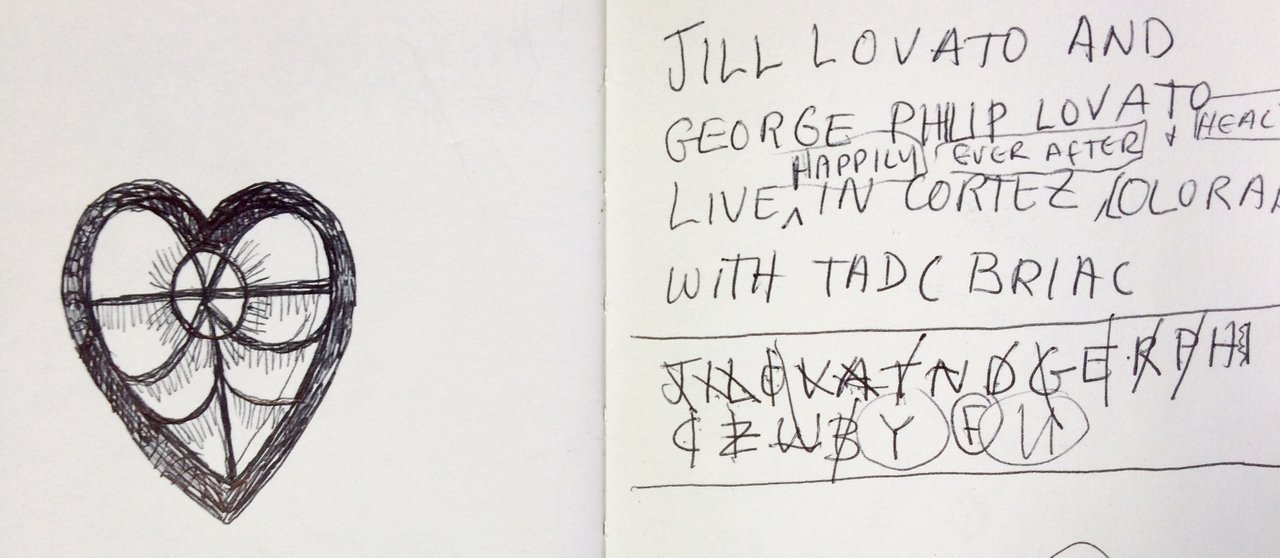 JILL LOVATO AND
GEORGE PHILIP LOVATO & HEAL
HAPPILY EVER AFTER
LIVE ^ IN CORTEZ COLORA
WITH TADC BRIAC
J I L O V A T N D G E R P H
C Z W B Y F U